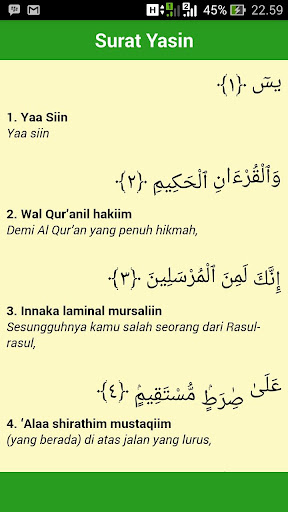 H 1 2 45% 22.59
Surat Yasin
يسٓ ۝{١}۝
1. Yaa Siin
Yaa siin
وَٱلْقُرْءَانِ ٱلْحَكِيمِ ۝{٢}۝
2. Wal Qur’anil hakiim
Demi Al Qur’an yang penuh hikmah,
إِنَّكَ لَمِنَ ٱلْمُرْسَلِينَ ۝{٣}۝
3. Innaka laminal mursaliin
Sesungguhnya kamu salah seorang dari Rasul-
rasul,
عَلَىٰ صِرَٰطٍۢ مُّسْتَقِيمٍۢ ۝{٤}۝
4. ‘Alaa shirathim mustaqiim
(yang berada) di atas jalan yang lurus,